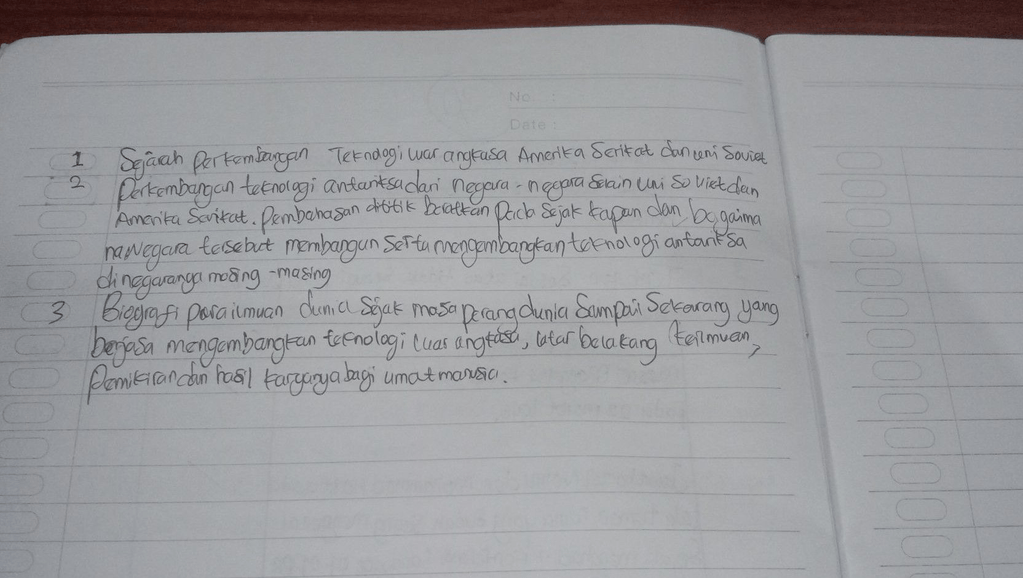 No :
Date :
1 Sejarah Perkembangan Teknologi luar angkasa Amerika Serikat dan uni Soviet
2 Perkembangan teknologi antariksa dari negara - negara selain uni soviet dan
Amerika Serikat. Pembahasan dititik beratkan Pada Sejak kapan dan bagaima
na Negara tersebut membangun serta mengembangkan teknologi antariksa
di negaranya masing - masing
3 Biografi para ilmuan dunia Sejak masa perang dunia Sampai Sekarang yang
berjasa mengembangkan teknologi luar angkasa, latar belakang keilmuan,
Pemikiran dan hasil karyanya bagi umat manusia.